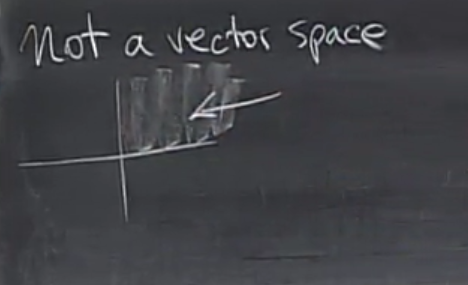 Not a vector space